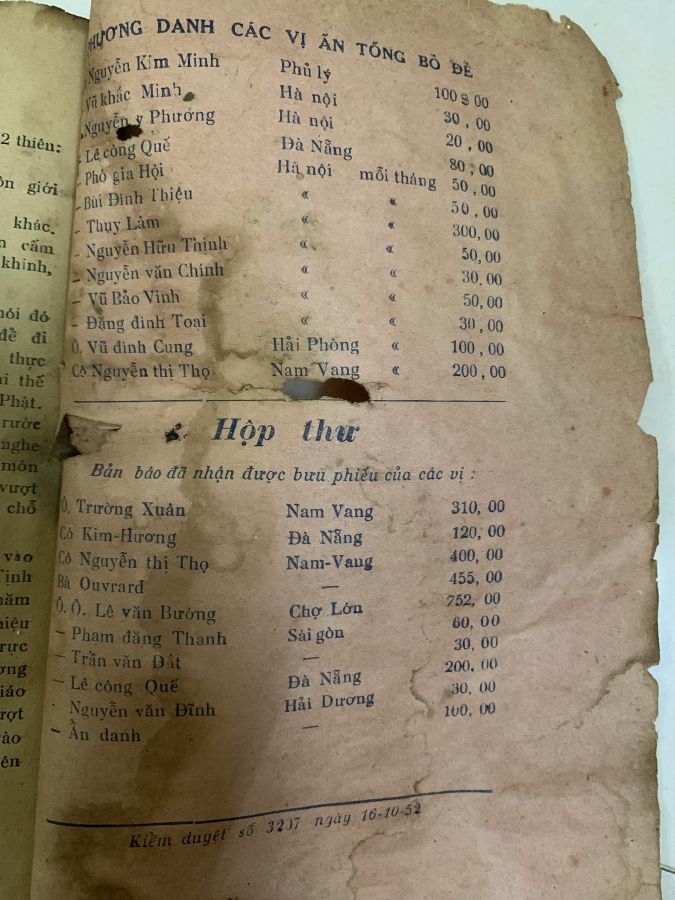 2 thiên:
ôn giới
khác.
n cấm
khinh,
nói đó
để đi
thực
ni thế
Phật.
rước
nghe
món
vượt
chỗ
vào
Tịnh
năm
hiệu
rực
ơng
iáo
rợt
ào
ên
PHƯƠNG DANH CÁC VỊ ẤN TỐNG BỒ ĐỀ
Nguyễn Kim Minh Phủ lý 100$00
Vũ khắc Minh Hà nội 30,00
Nguyễn y Phương Hà nội 20,00
- Lê công Quế Đà Nẵng 80,00
- Phó gia Hội Hà nội mỗi tháng 50,00
- Bùi Đình Thiệu « « 50,00
- Thụy Lâm « « 300,00
- Nguyễn Hữu Thịnh « « 50,00
- Nguyễn văn Chinh « « 30,00
- Vũ Bảo Vinh « « 50,00
- Đặng đình Toại « « 30,00
Ô. Vũ đình Cung Hải Phòng « 100,00
Cô Nguyễn thị Thọ Nam Vang « 200,00
Hộp thư
Bản báo đã nhận được bưu phiếu của các vị :
Ô. Trường Xuân Nam Vang 310,00
Cô Kim-Hương Đà Nẵng 120,00
Cô Nguyễn thị Thọ Nam-Vang 400,00
Bà Ouvrard — 455,00
Ô. Ô. Lê văn Bường Chợ Lớn 752,00
- Pham đăng Thanh Sài gòn 60,00
- Trần văn Đắt — 30,00
- Lê công Quế Đà Nẵng 200.00
Nguyễn văn Đĩnh Hải Dương 30,00
- Ẩn danh — 100,00
Kiểm duyệt số 3207 ngày 16-10-52